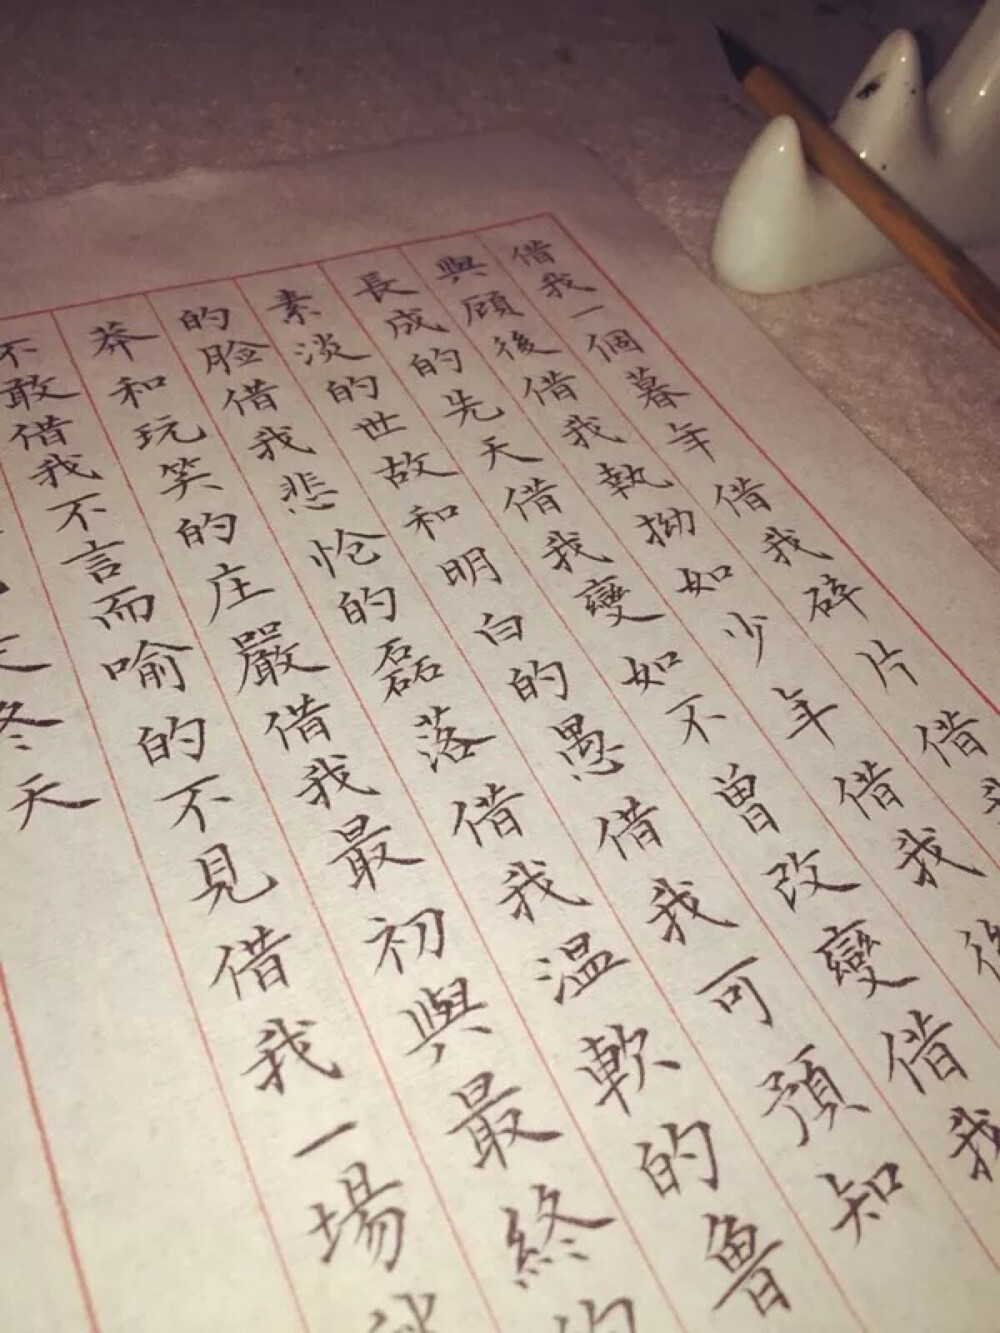 借我一個暮年借我碎片借我
與顧後借我執拗如少年借我後
長成的先天借我變如不曾改變借我
素淡的世故和明白的愚借我可預知
的脸借我悲怆的磊落借我温軟的魯
莽和玩笑的庄嚴借我最初與最終的
不敢借我不言而喻的不見借我一場
冬天